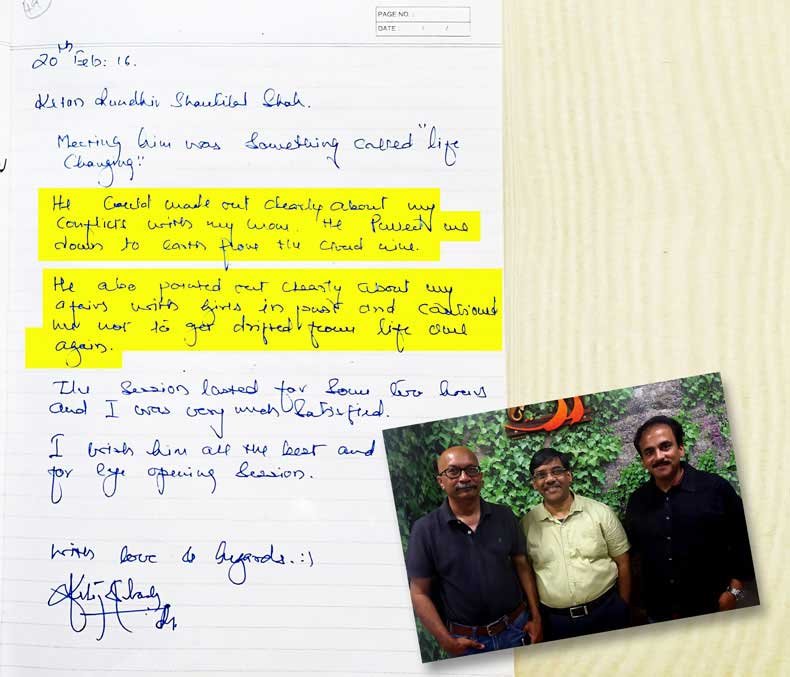 49
PAGE NO. :
DATE : / /
20th Feb. 16.
Randhir Shantilal Shah.
Meeting him was something called "life
Changing".
He Could made out clearly about my
Conflicts with my mom. He Pulled me
down to earth from the cloud nine.
He also pointed out clearly about my
afairs with girls in past and cautioned
me not to get drifted from life
again.
The Session lasted for Some two hours
and I was very much Satisfied.
I wish him all the best and
for eye opening Session.
With love & regards. :)